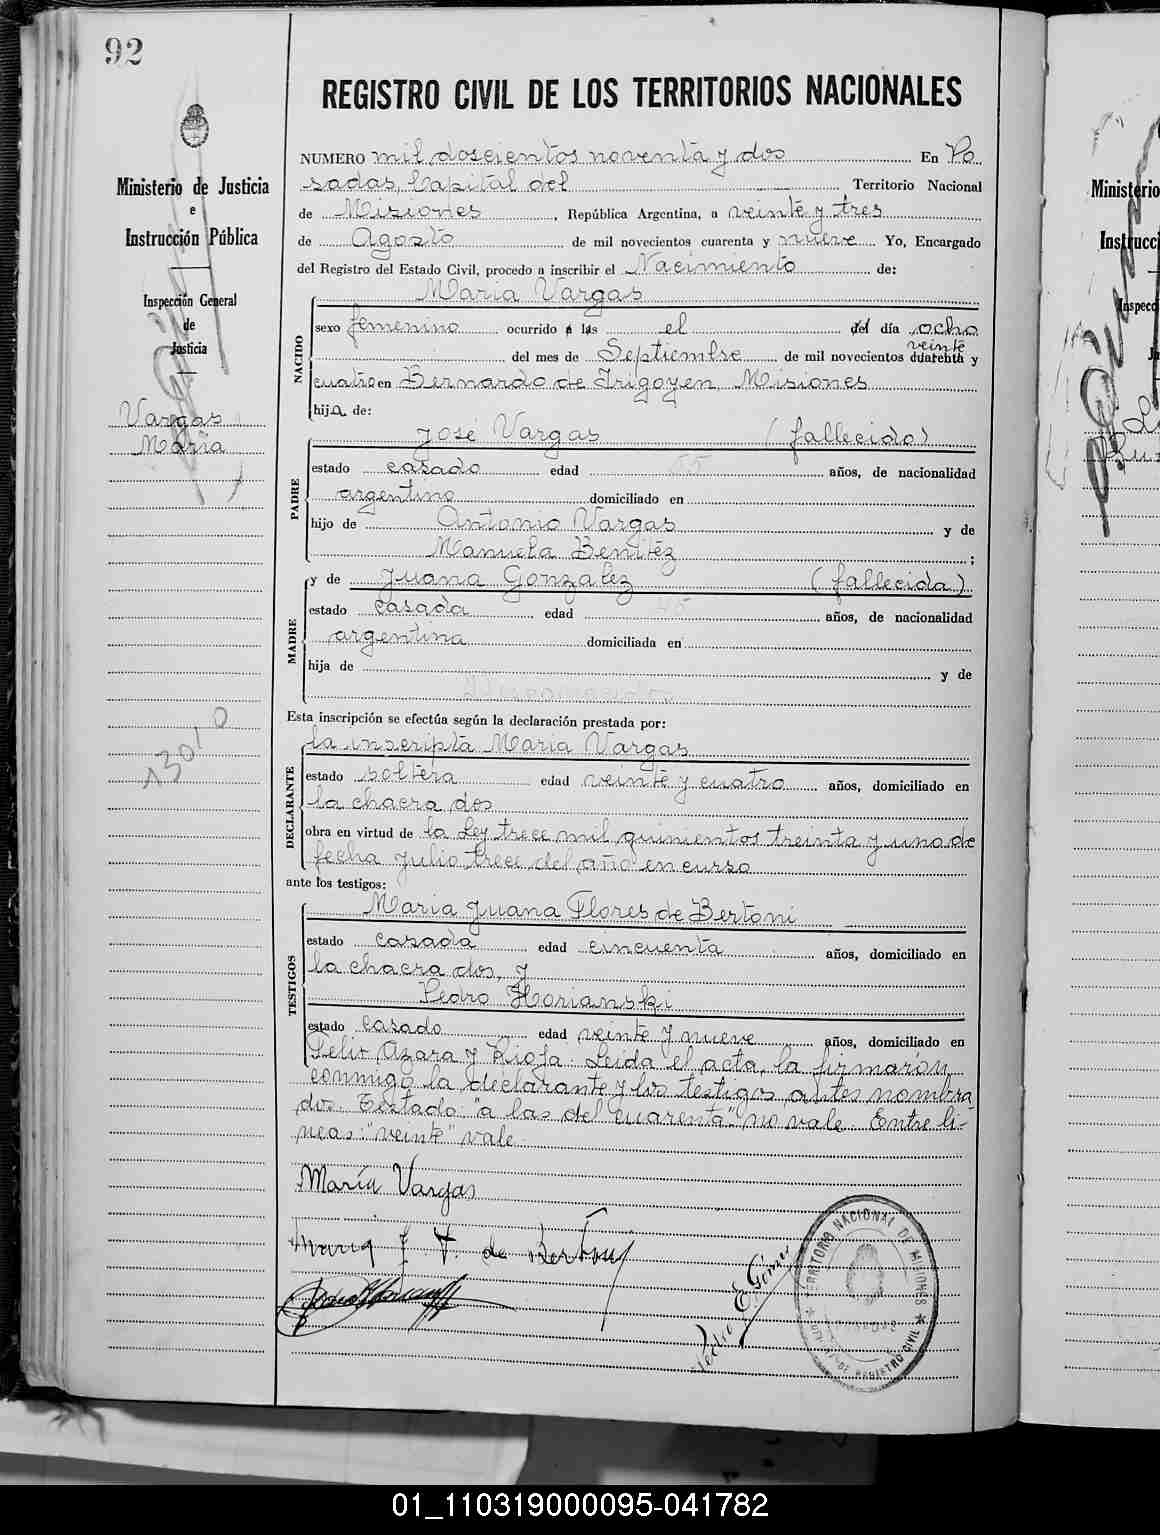 92
Ministerio de Justicia
e
Instrucción Pública
Inspección General
de
Justicia
Vargas
Maria
13010
REGISTRO CIVIL DE LOS TERRITORIOS NACIONALES
NUMERO mil doscientos noventa y dos En Po
sadas, Capital del Territorio Nacional
de Misiones, República Argentina, a veinte y tres
de Agosto de mil novecientos cuarenta y nueve Yo, Encargado
del Registro del Estado Civil, procedo a inscribir el Nacimiento de:
Maria Vargas
NACIDO
sexo femenino ocurrido a las el del día ocho
veinte
del mes de Septiembre de mil novecientos cuarenta y
cuatro en Bernardo de Irigoyen, Misiones
hija de:
José Vargas (fallecido)
PADRE
estado casado edad 55 años, de nacionalidad
argentino domiciliado en
hijo de Antonio Vargas y de
Manuela Benitez ;
y de Juana Gonzalez (fallecida)
MADRE
estado casada edad 45 años, de nacionalidad
argentina domiciliada en
hija de y de
Esta inscripción se efectúa según la declaración prestada por:
la inscripta Maria Vargas
DECLARANTE
estado soltera edad veinte y cuatro años, domiciliado en
la chacra dos
obra en virtud de la Ley trece mil quinientos treinta y uno de
fecha Julio trece del año en curso
ante los testigos:
Maria Juana Flores de Bertoni
TESTIGOS
estado casada edad cincuenta años, domiciliado en
la chacra dos, y
Pedro Horianski
estado casado edad veinte y nueve años, domiciliado en
Felix Azara y Rioja. Leida el acta, la firmarón
conmigo la declarante y los testigos antes nombra
dos. Testado: "a las del cuarenta" no vale. Entre li-
neas: "veinte" vale.
María Vargas
Maria J F. de Bertoni
Pedro E. Gómez
TERRITORIO NACIONAL DE MISIONES
POSADAS
DE REGISTRO CIVIL
Ministerio
Instrucc
Inspecc
01_110319000095-041782